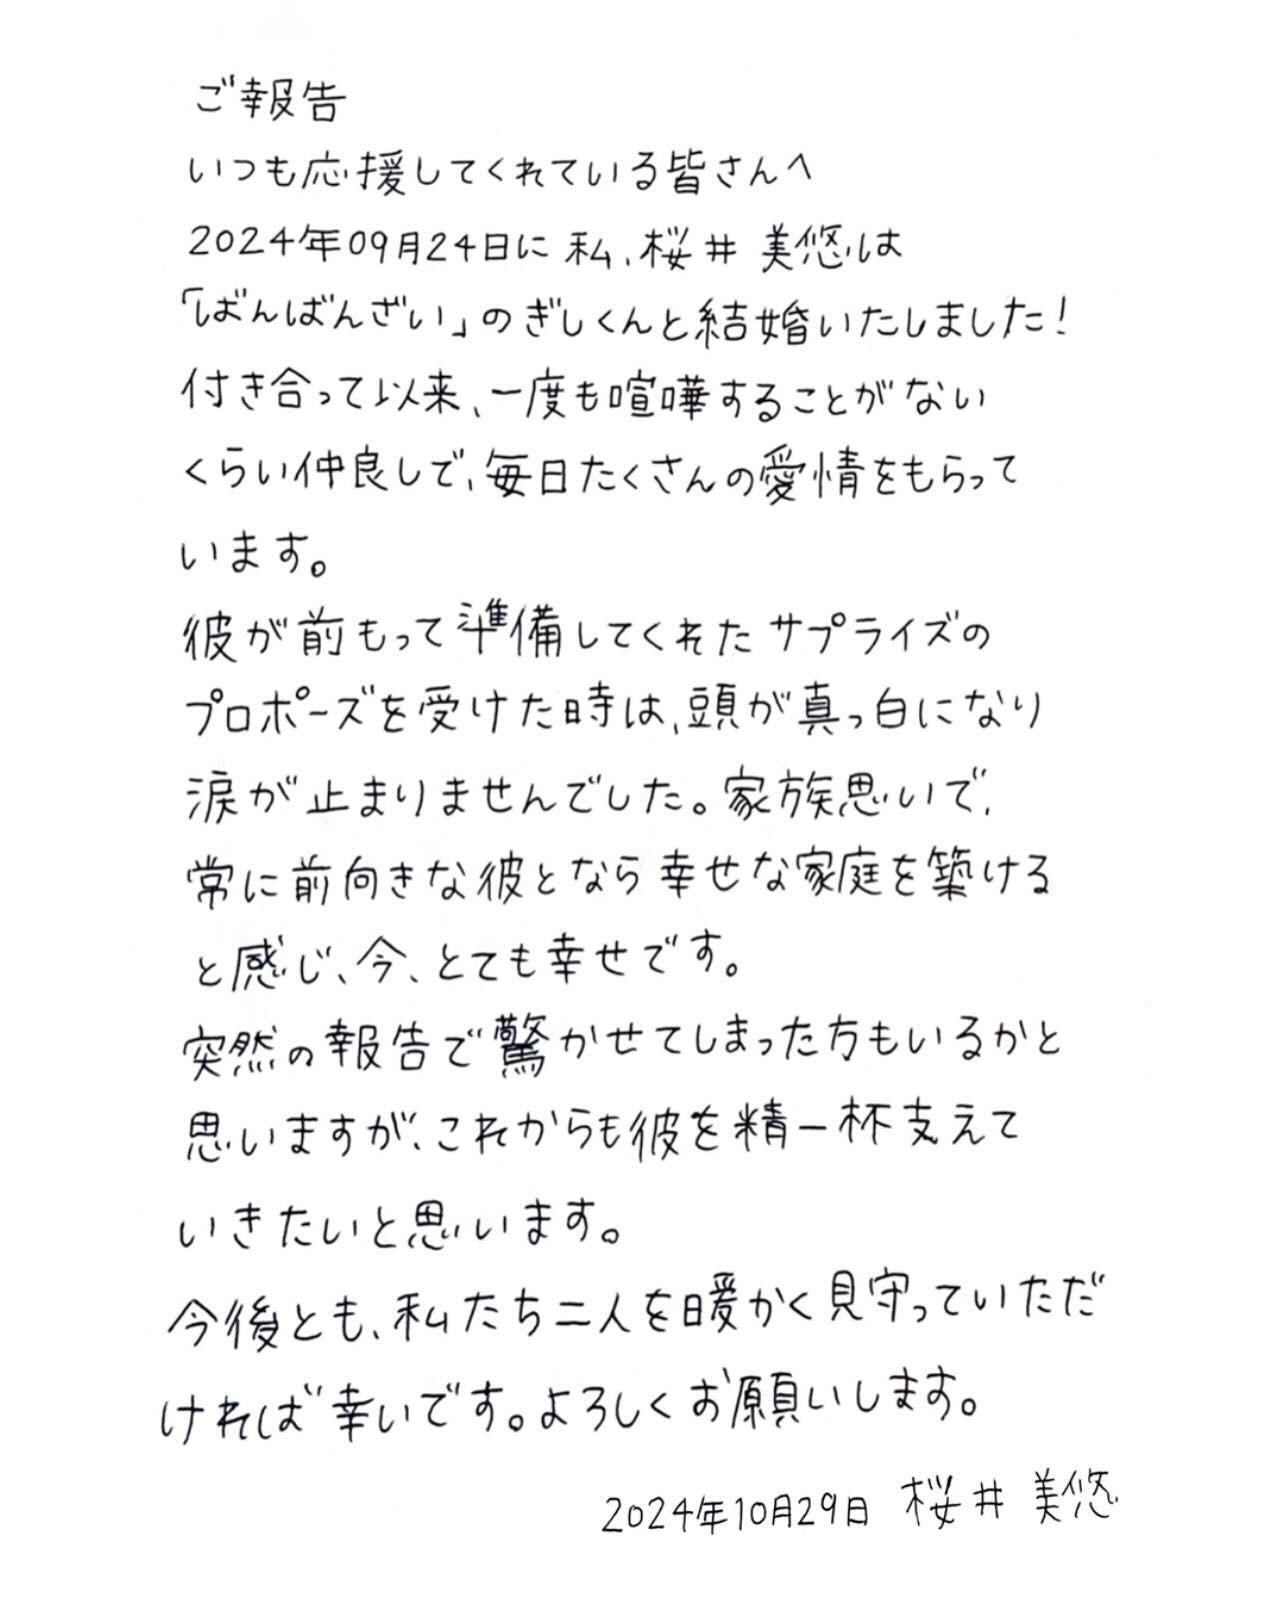 ご報告
いつも応援してくれている皆さんへ
2024年09月24日に 私、桜井 美悠は
「ばんばんざい」のぎしくんと結婚いたしました!
付き合って以来、一度も喧嘩することがない
くらい仲良しで、毎日たくさんの愛情をもらって
います。
彼が前もって準備してくれたサプライズの
プロポーズを受けた時は、頭が真っ白になり
涙が止まりませんでした。家族思いで、
常に前向きな彼となら幸せな家庭を築ける
と感じ、今、とても幸せです。
突然の報告で驚かせてしまった方もいるかと
思いますが、これからも彼を精一杯支えて
いきたいと思います。
今後とも、私たち二人を暖かく見守っていただ
ければ幸いです。よろしくお願いします。
2024年10月29日 桜井 美悠